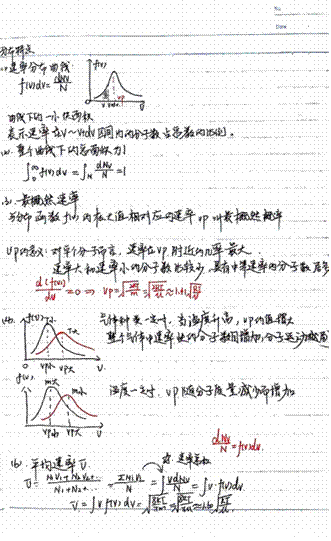 No
Date
分布特点
(1). 速率分布曲线:
f(v)dv = dNv/N
f(v)
vp
v v+dv
v
曲线下的一小块面积
表示速率在v~v+dv区间内的分子数占总数的比例。
(2). 整个曲线下的总面积为1
∫₀^∞ f(v)dv = ∫_N dNv/N = 1
(3). 最概然速率
与分布函数f(v)的极大值相对应的速率vp叫最概然概率
vp的含义: 对单个分子而言, 速率在vp附近的几率最大
速率大和速率小的分子数比较少, 具有中等速率的分子数居多
d(f(v))/dv = 0 => vp = √(2kT/m) = √(2RT/μ) ≈ 1.41√(RT/μ)
(4). f(v) T小
T大
0 vp小 vp大 v
气体种类一定时, 当温度升高, vp的值增大
整个气体中速率快的分子数目增加, 分子运动越剧
f(v) m大
m小
vp小 vp大 v
温度一定时, vp随分子质量减小而增加
dNv/N = f(v)dv.
(6). 平均速率 v̄
v̄ = (N₁v₁+N₂v₂+…)/(N₁+N₂+…) = ΣNᵢvᵢ/N = ∫v dNv/N = ∫v·f(v)dv.
v̄ = ∫v f(v)dv = √(8kT/πm) = √(8RT/πμ) ≈ 1.60√(RT/μ)